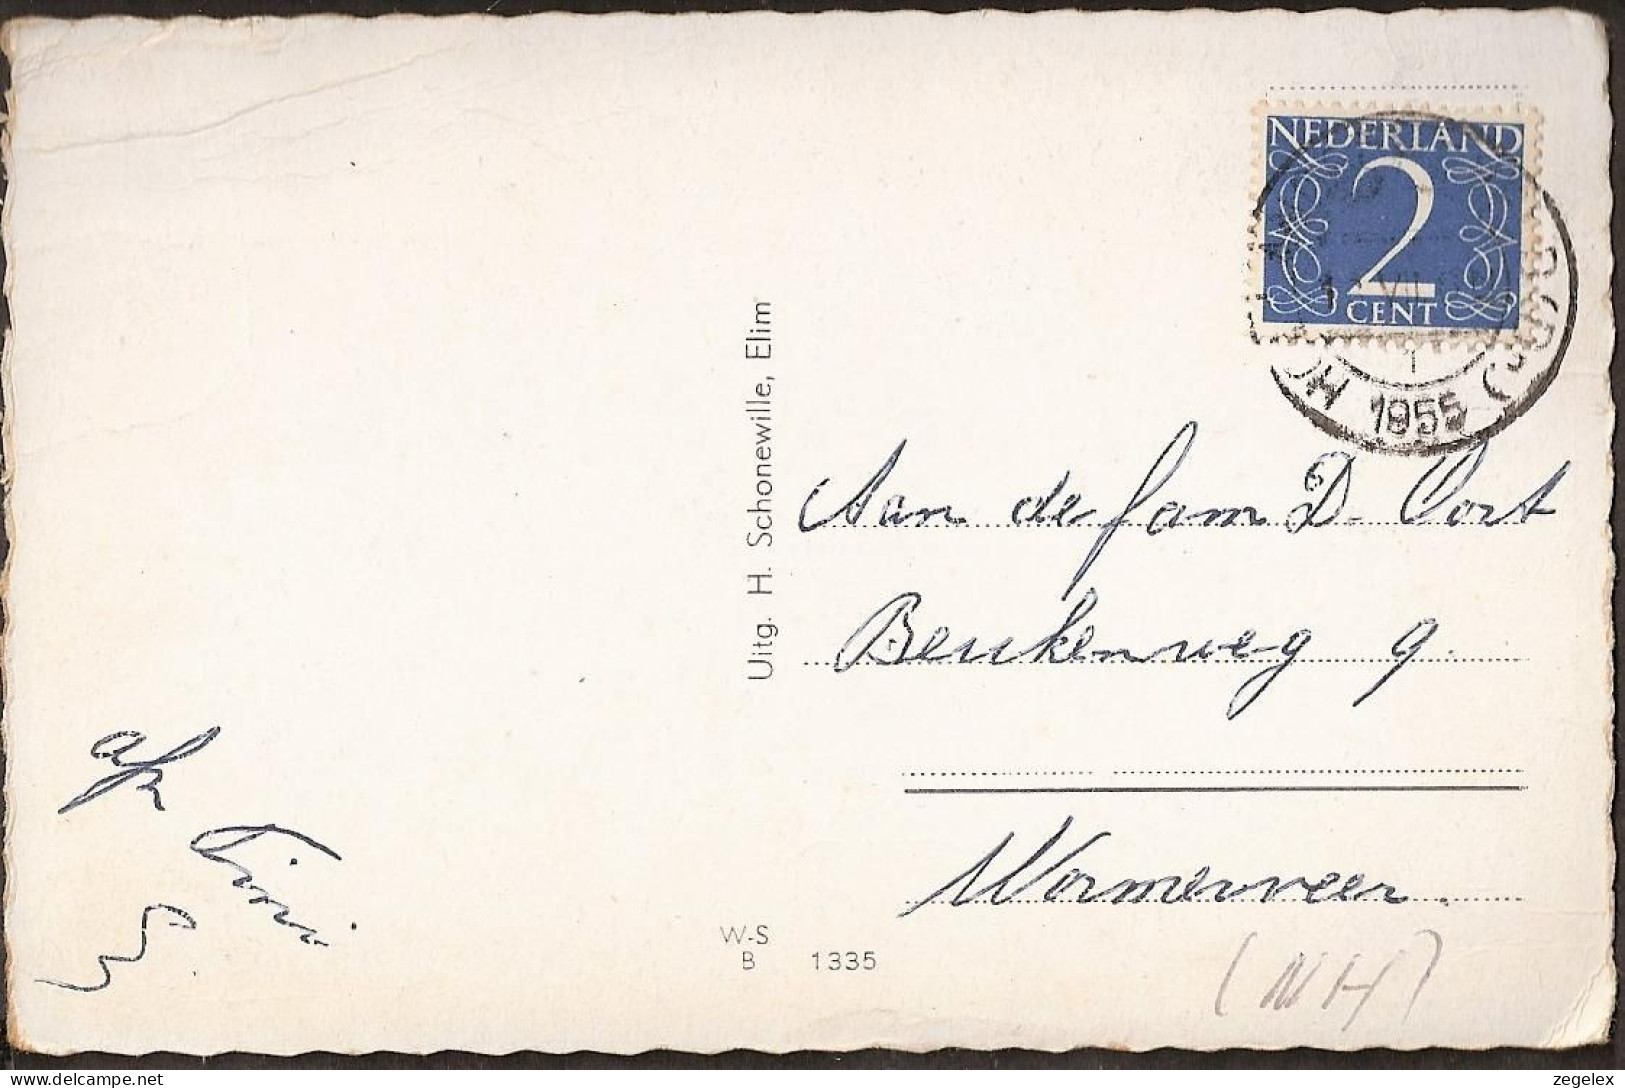 NEDERLAND
2
CENT
1955
Uitg. H. Schonewille, Elim
Aan de fam D. Oort
Beukenweg 9.
Wormerveer.
(NH)
afz
Tini
W-S
B 1335
delcampe.net
zegelex